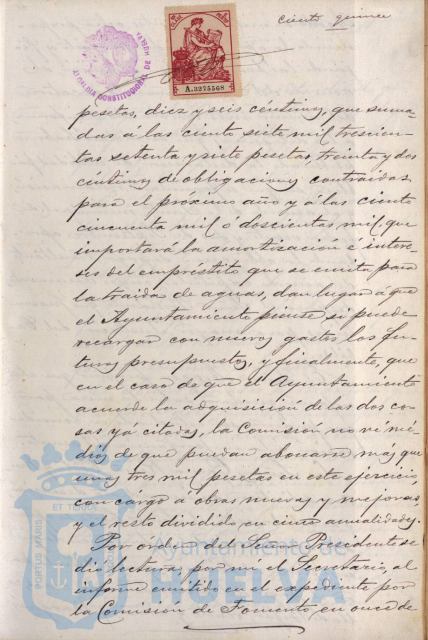 ciento quince
ALCALDIA CONSTITUCIONAL DE HUELVA
A.3275568
pesetas, diez y seis céntimos, que suma-
das á las ciento siete mil trescien-
tas setenta y siete pesetas, treinta y dos
céntimos de obligaciones contraidas
para el próximo año y á las ciento
cincuenta mil ó doscientas mil que
importará la amortización é intere-
ses del empréstito que se emita para
la traida de aguas, dan lugar á que
el Ayuntamiento piense si puede
recargar con nuevos gastos los fu-
turos presupuestos, y finalmente, que
en el caso de que el Ayuntamiento
acuerde la adquisición de las dos co-
sas yá citadas, la Comisión no vé mé-
dios de que puedan abonarse más que
unas tres mil pesetas en este ejercicio
con cargo á obras nuevas y mejoras
y el resto dividido en cinco anualidades.
Por órden del Señor Presidente se
dió lectura por mí el Secretario, al
informe emitido en el expediente por
la Comisión de Fomento, en once de
PORTUS MARIS ET TERRÆ
Ayuntamiento de
HUELVA